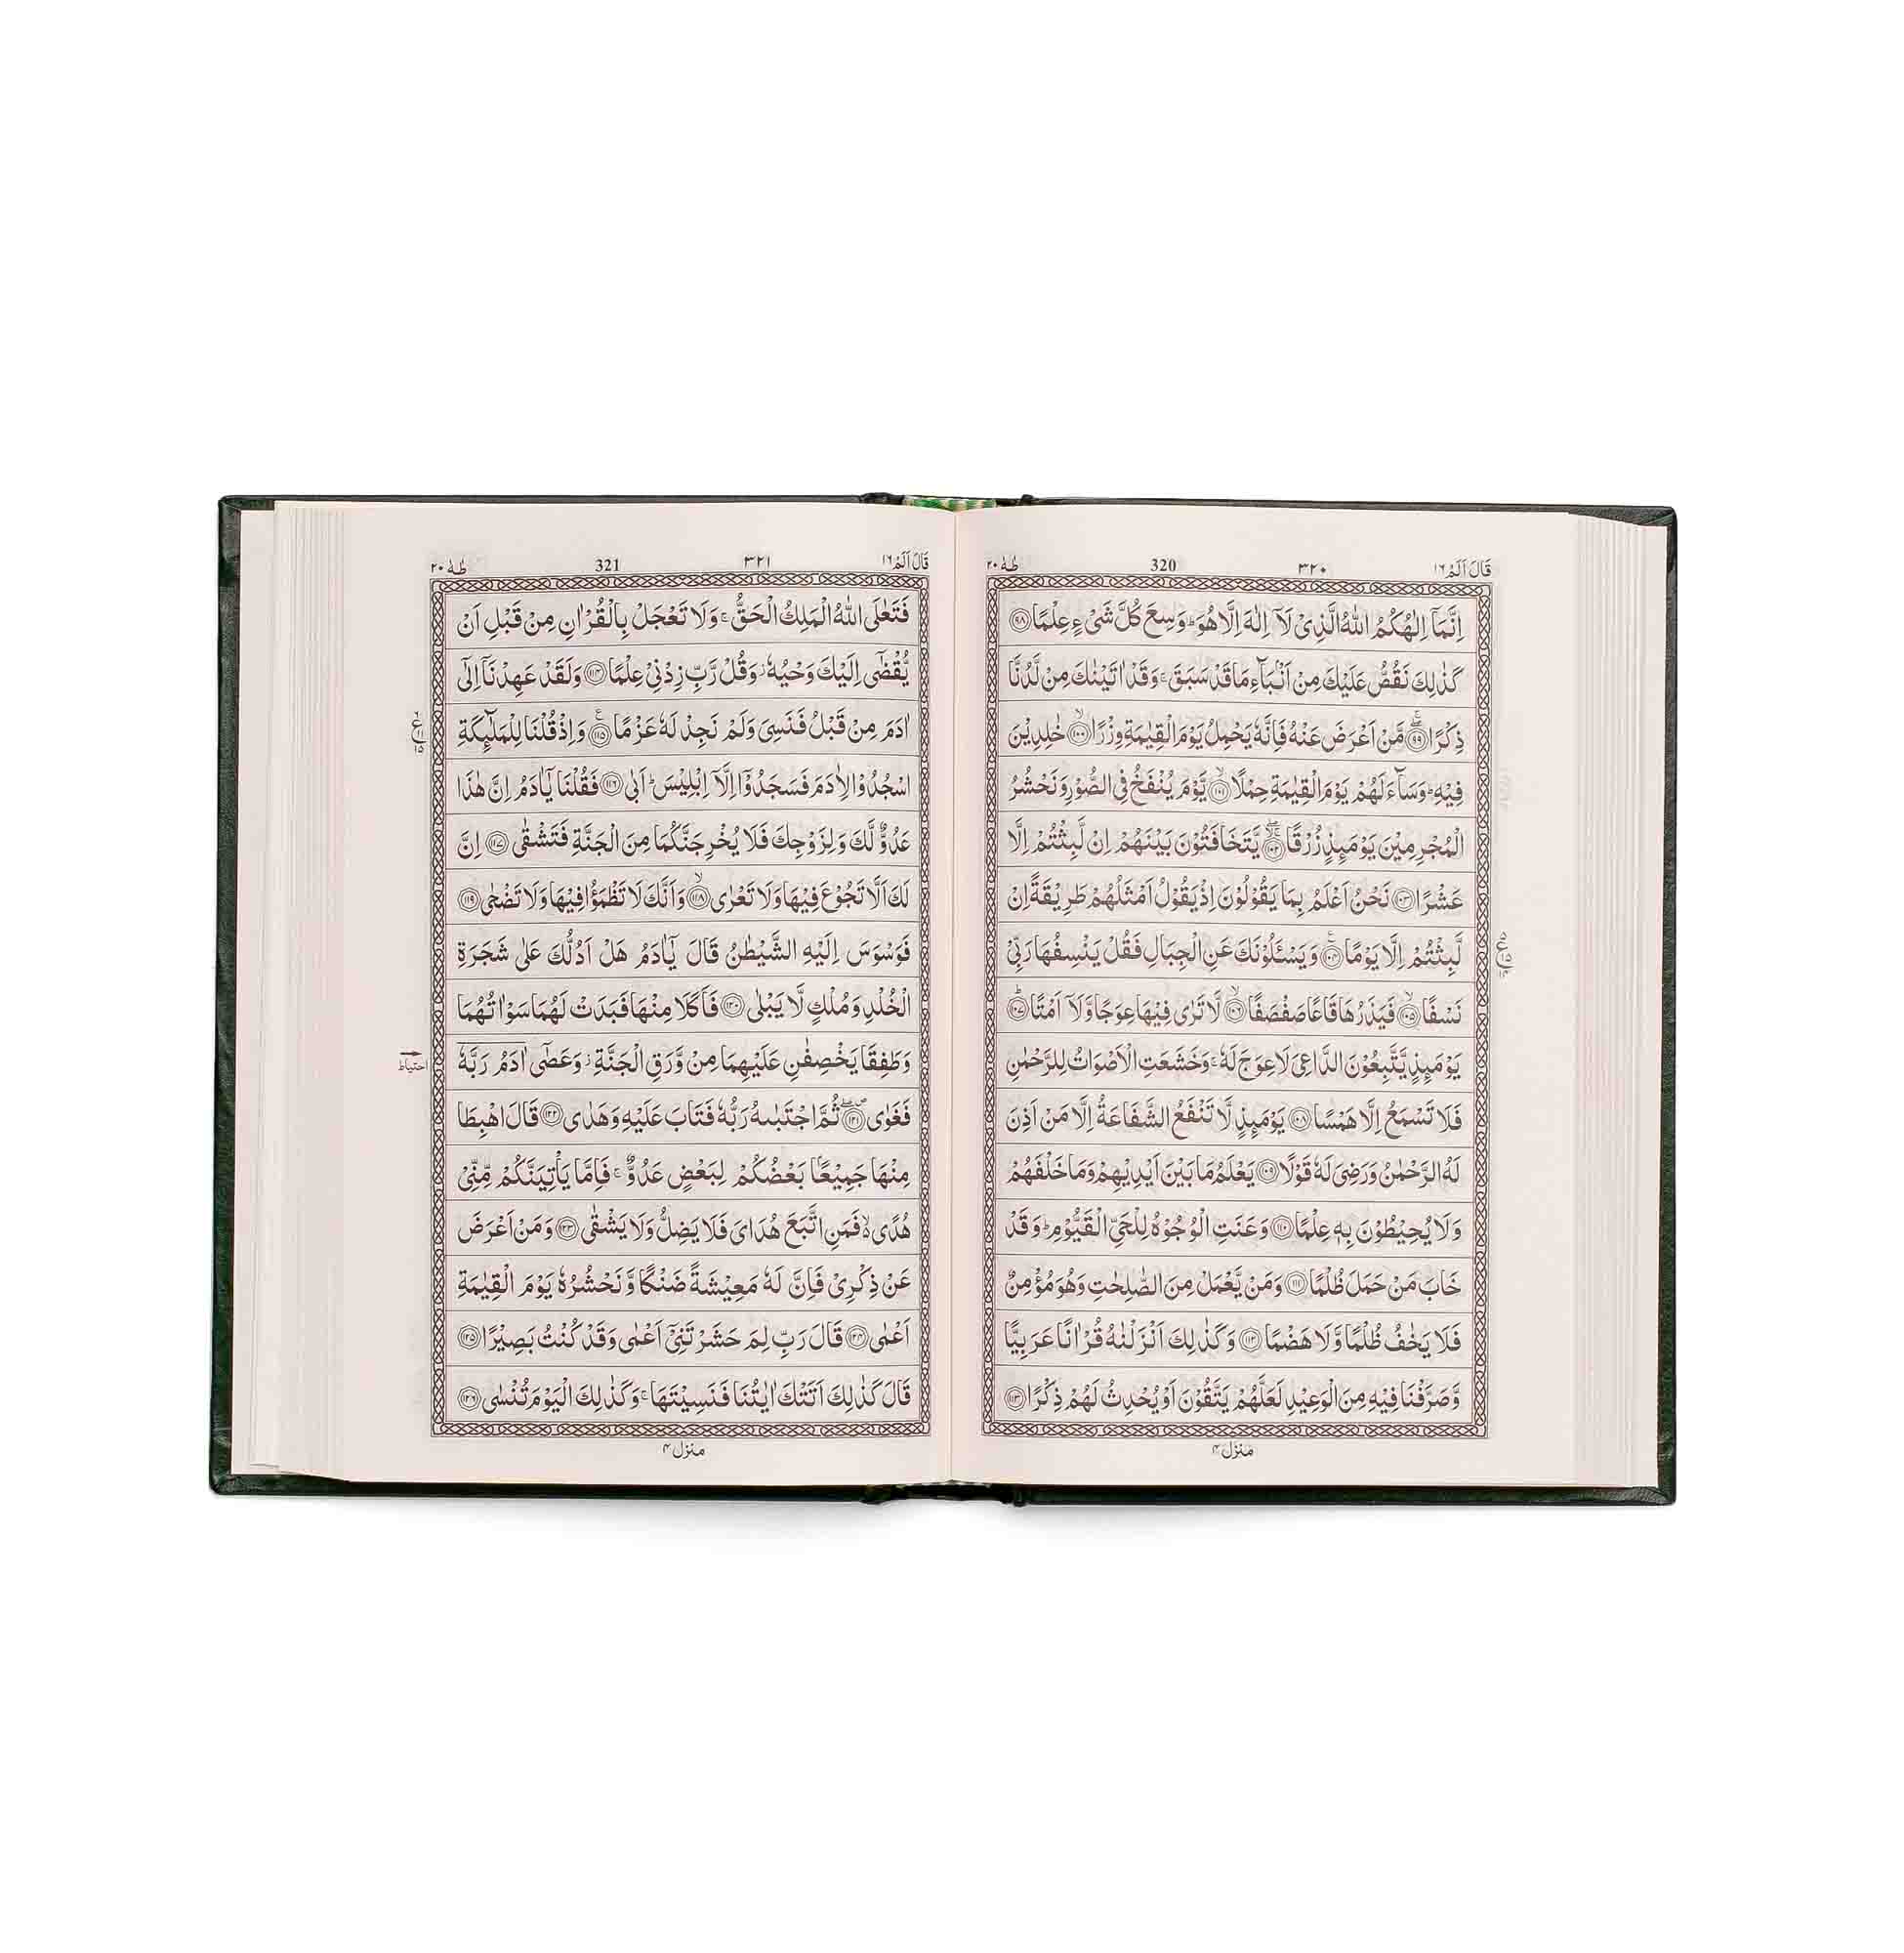 قَالَ اَلَمْ ١٦ ٣٢٠ 320 طٰهٰ ٢٠
اِنَّمَاۤ اِلٰهُكُمُ اللّٰهُ الَّذِىْ لَاۤ اِلٰهَ اِلَّا هُوَ ؕ وَسِعَ كُلَّ شَىْءٍ عِلْمًا ﴿٩٨﴾
كَذٰلِكَ نَقُصُّ عَلَيْكَ مِنْ اَنْۢبَآءِ مَا قَدْ سَبَقَ ۚ وَقَدْ اٰتَيْنٰكَ مِنْ لَّدُنَّا
ذِكْرًا ﴿٩٩﴾ مَّنْ اَعْرَضَ عَنْهُ فَاِنَّهٗ يَحْمِلُ يَوْمَ الْقِيٰمَةِ وِزْرًا ﴿١٠٠﴾ خٰلِدِيْنَ
فِيْهِ ؕ وَسَآءَ لَهُمْ يَوْمَ الْقِيٰمَةِ حِمْلًا ﴿١٠١﴾ يَّوْمَ يُنْفَخُ فِى الصُّوْرِ وَنَحْشُرُ
الْمُجْرِمِيْنَ يَوْمَئِذٍ زُرْقًا ﴿١٠٢﴾ يَّتَخَافَتُوْنَ بَيْنَهُمْ اِنْ لَّبِثْتُمْ اِلَّا
عَشْرًا ﴿١٠٣﴾ نَحْنُ اَعْلَمُ بِمَا يَقُوْلُوْنَ اِذْ يَقُوْلُ اَمْثَلُهُمْ طَرِيْقَةً اِنْ
لَّبِثْتُمْ اِلَّا يَوْمًا ﴿١٠٤﴾ وَيَسْـَٔلُوْنَكَ عَنِ الْجِبَالِ فَقُلْ يَنْسِفُهَا رَبِّىْ
نَسْفًا ﴿١٠٥﴾ فَيَذَرُهَا قَاعًا صَفْصَفًا ﴿١٠٦﴾ لَّا تَرٰى فِيْهَا عِوَجًا وَّلَاۤ اَمْتًا ﴿١٠٧﴾
يَوْمَئِذٍ يَّتَّبِعُوْنَ الدَّاعِىَ لَا عِوَجَ لَهٗ ۚ وَخَشَعَتِ الْاَصْوَاتُ لِلرَّحْمٰنِ
فَلَا تَسْمَعُ اِلَّا هَمْسًا ﴿١٠٨﴾ يَوْمَئِذٍ لَّا تَنْفَعُ الشَّفَاعَةُ اِلَّا مَنْ اَذِنَ
لَهُ الرَّحْمٰنُ وَرَضِىَ لَهٗ قَوْلًا ﴿١٠٩﴾ يَعْلَمُ مَا بَيْنَ اَيْدِيْهِمْ وَمَا خَلْفَهُمْ
وَلَا يُحِيْطُوْنَ بِهٖ عِلْمًا ﴿١١٠﴾ وَعَنَتِ الْوُجُوْهُ لِلْحَىِّ الْقَيُّوْمِ ؕ وَقَدْ
خَابَ مَنْ حَمَلَ ظُلْمًا ﴿١١١﴾ وَمَنْ يَّعْمَلْ مِنَ الصّٰلِحٰتِ وَهُوَ مُؤْمِنٌ
فَلَا يَخٰفُ ظُلْمًا وَّلَا هَضْمًا ﴿١١٢﴾ وَكَذٰلِكَ اَنْزَلْنٰهُ قُرْاٰنًا عَرَبِيًّا
وَّصَرَّفْنَا فِيْهِ مِنَ الْوَعِيْدِ لَعَلَّهُمْ يَتَّقُوْنَ اَوْ يُحْدِثُ لَهُمْ ذِكْرًا ﴿١١٣﴾
منزل ۴
قَالَ اَلَمْ ١٦ ٣٢١ 321 طٰهٰ ٢٠
فَتَعٰلَى اللّٰهُ الْمَلِكُ الْحَقُّ ۚ وَلَا تَعْجَلْ بِالْقُرْاٰنِ مِنْ قَبْلِ اَنْ
يُّقْضٰۤى اِلَيْكَ وَحْيُهٗ ؗ وَقُلْ رَّبِّ زِدْنِىْ عِلْمًا ﴿١١٤﴾ وَلَقَدْ عَهِدْنَاۤ اِلٰٓى
اٰدَمَ مِنْ قَبْلُ فَنَسِىَ وَلَمْ نَجِدْ لَهٗ عَزْمًا ﴿١١٥﴾ وَاِذْ قُلْنَا لِلْمَلٰٓئِكَةِ
اسْجُدُوْا لِاٰدَمَ فَسَجَدُوْۤا اِلَّاۤ اِبْلِيْسَ ؕ اَبٰى ﴿١١٦﴾ فَقُلْنَا يٰۤاٰدَمُ اِنَّ هٰذَا
عَدُوٌّ لَّكَ وَلِزَوْجِكَ فَلَا يُخْرِجَنَّكُمَا مِنَ الْجَنَّةِ فَتَشْقٰى ﴿١١٧﴾ اِنَّ
لَكَ اَلَّا تَجُوْعَ فِيْهَا وَلَا تَعْرٰى ﴿١١٨﴾ وَاَنَّكَ لَا تَظْمَؤُا فِيْهَا وَلَا تَضْحٰى ﴿١١٩﴾
فَوَسْوَسَ اِلَيْهِ الشَّيْطٰنُ قَالَ يٰۤاٰدَمُ هَلْ اَدُلُّكَ عَلٰى شَجَرَةِ
الْخُلْدِ وَمُلْكٍ لَّا يَبْلٰى ﴿١٢٠﴾ فَاَكَلَا مِنْهَا فَبَدَتْ لَهُمَا سَوْاٰتُهُمَا
وَطَفِقَا يَخْصِفٰنِ عَلَيْهِمَا مِنْ وَّرَقِ الْجَنَّةِ ؗ وَعَصٰۤى اٰدَمُ رَبَّهٗ
احتياط
فَغَوٰى ﴿١٢١﴾ ثُمَّ اجْتَبٰىهُ رَبُّهٗ فَتَابَ عَلَيْهِ وَهَدٰى ﴿١٢٢﴾ قَالَ اهْبِطَا
مِنْهَا جَمِيْعًۢا بَعْضُكُمْ لِبَعْضٍ عَدُوٌّ ۚ فَاِمَّا يَاْتِيَنَّكُمْ مِّنِّىْ
هُدًى ۙ فَمَنِ اتَّبَعَ هُدَاىَ فَلَا يَضِلُّ وَلَا يَشْقٰى ﴿١٢٣﴾ وَمَنْ اَعْرَضَ
عَنْ ذِكْرِىْ فَاِنَّ لَهٗ مَعِيْشَةً ضَنْكًا وَّنَحْشُرُهٗ يَوْمَ الْقِيٰمَةِ
اَعْمٰى ﴿١٢٤﴾ قَالَ رَبِّ لِمَ حَشَرْتَنِىْۤ اَعْمٰى وَقَدْ كُنْتُ بَصِيْرًا ﴿١٢٥﴾
قَالَ كَذٰلِكَ اَتَتْكَ اٰيٰتُنَا فَنَسِيْتَهَا ۚ وَكَذٰلِكَ الْيَوْمَ تُنْسٰى ﴿١٢٦﴾
منزل ۴